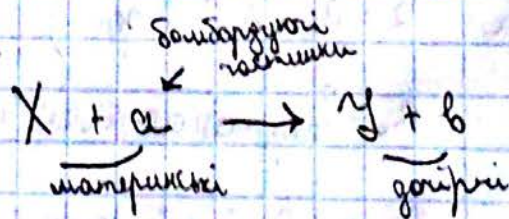 бомбардуючі
частинки
X + a → Y + b
материнські дочірні